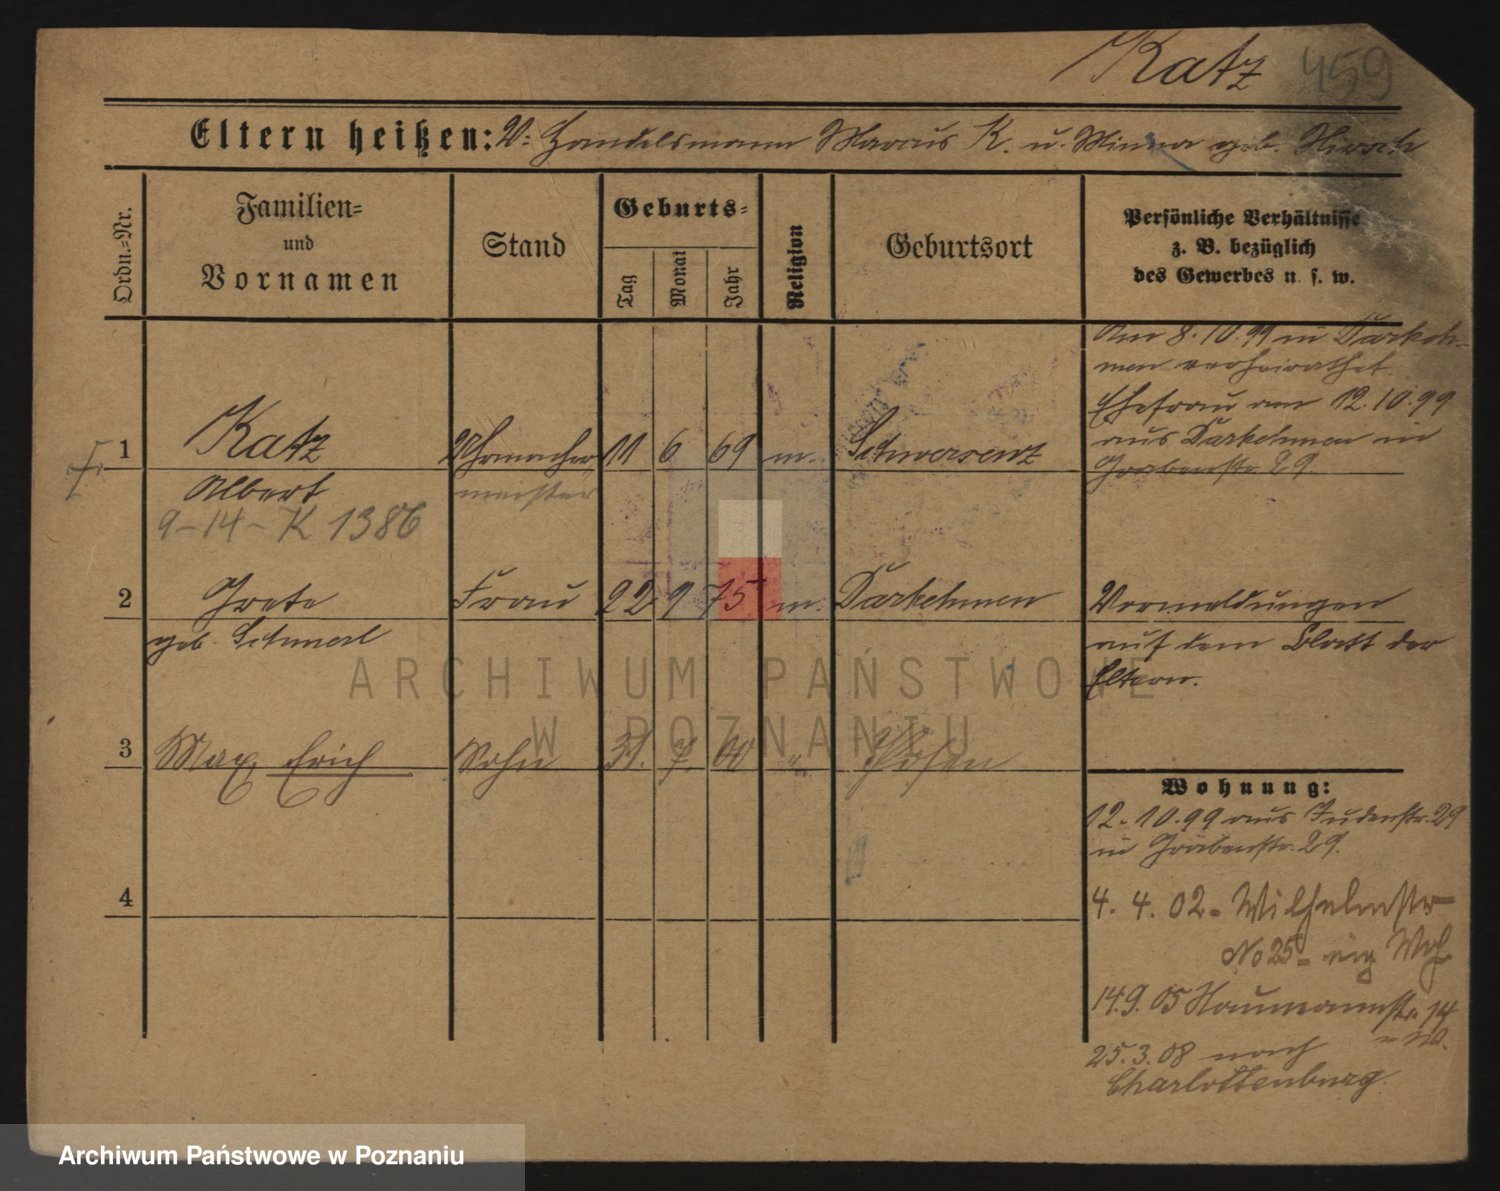 Katz 459
Eltern heißen: V: Handelsmann Marcus K. u. Minna geb. Hirsch
Ordn.-Nr.
Familien-
und
Vornamen
Stand
Geburts-
Tag
Monat
Jahr
Religion
Geburtsort
Persönliche Verhältnisse
z. B. bezüglich
des Gewerbes u. s. w.
1 Katz Uhrmacher 11 6 69 m. Schwersenz
Albert meister
9-14-K 1386
Am 8.10.99 in Darkeh-
men verheirathet.
Ehefrau am 12.10.99
aus Darkehmen in
Grabenstr. 29.
2 Grete Frau 22 9 75 m. Darkehmen
geb. Schmerl
Vormeldungen
auf dem Blatt der
Eltern.
3 Max Erich Sohn 31. 7. 00 " Posen
4
Wohnung:
12.10.99 aus Judenstr. 29
in Grabenstr. 29.
4. 4. 02 - Wilhelmstr
No 25 - eig Wh.
14.9.05 Naumannstr. 14
25.3.08 nach
Charlottenburg.
ARCHIWUM PAŃSTWOWE
W POZNANIU
Archiwum Państwowe w Poznaniu